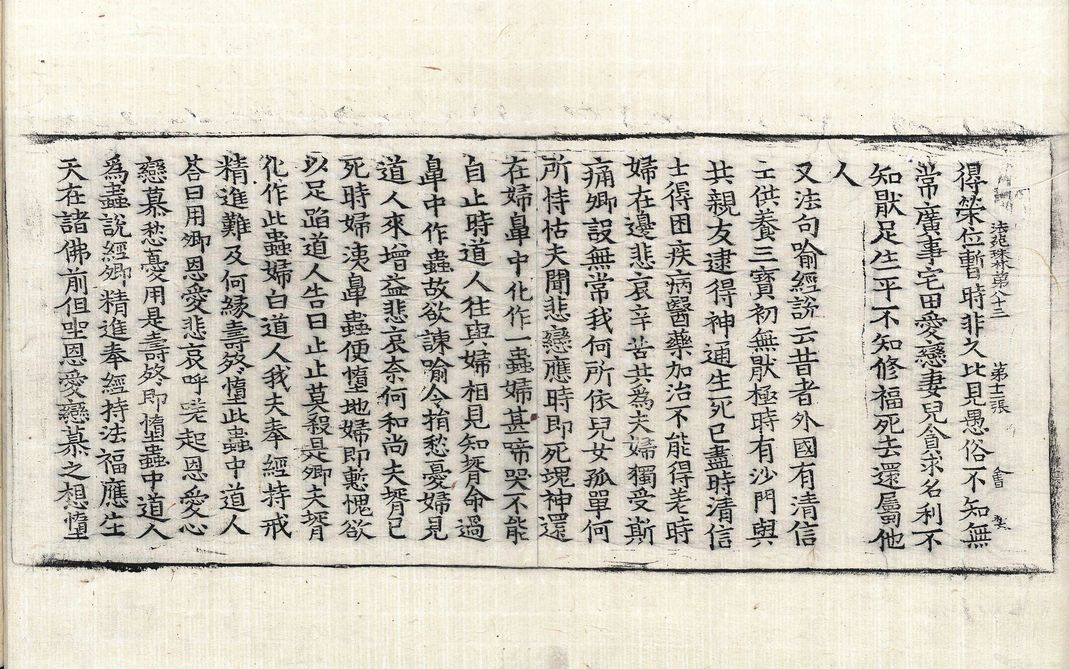 法苑珠林第八十三 第十二張
得榮位暫時非久比見愚俗不知無
常廣事宅田愛戀妻兒貪求名利不
知猒足生平不知修福死去還屬他
人
又法句喻經說云昔者外國有清信
士供養三寶初無猒極時有沙門與
共親友逮得神通生死已盡時清信
士得困疾病醫藥加治不能得差時
婦在邊悲哀辛苦共為夫婦獨受斯
痛卿設無常我何所依兒女孤單何
所恃怙夫聞悲戀應時即死塊神還
在婦鼻中化作一蟲婦甚啼哭不能
自止時道人往與婦相見知壻命過
鼻中作蟲故欲諫喻令捐愁憂婦見
道人來增益悲哀奈何和尚夫壻已
死時婦洟鼻蟲便墮地婦即慙愧欲
以足蹈道人告曰止止莫殺是卿夫壻
化作此蟲婦白道人我夫奉經持戒
精進難及何緣壽終墮此蟲中道人
荅曰用卿恩愛悲哀呼嗟起恩愛心
戀慕愁憂用是壽終即墮蟲中道人
爲蟲說經卿精進奉經持法福應生
天在諸佛前但坐恩愛戀慕之想墮